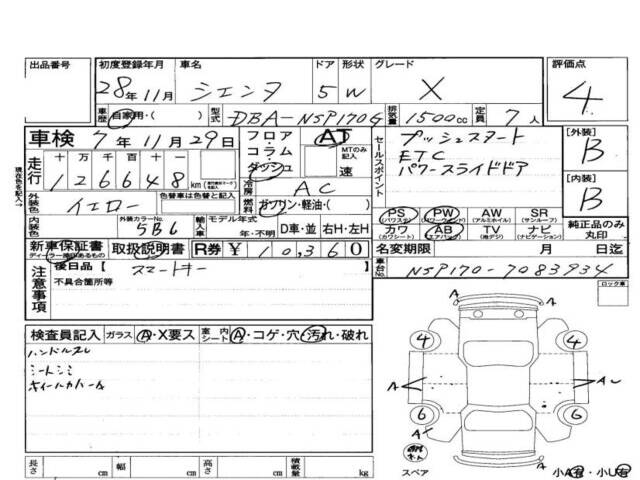 出品番号 初度登録年月 車名 ドア 形状 グレード 評価点
28年11月 シエンタ 5 W X 4
車歴 自家用・( ) 型式 DBA-NSP170G 排気量 1500cc 定員 7人
車検 7年11月29日 フロア・コラム・ダッシュ AT MTのみ記入 速
セールスポイント プッシュスタート
ETC
パワースライドドア
[外装] B
[内装] B
走行 十 万 千 百 十 一
126648 km
冷房 AC
外装色 イエロー 色替車は色替と記入 燃料 ガソリン・軽油・( )
内装色 外装カラーNo. 5B6 輸入車 モデル年式 年・不明 D車・並 右H・左H
PS (パワステ) PW (パワーウィンドウ) AW (アルミホイル) SR (サンルーフ)
カワ (カワシート) AB (エアバッグ) TV (地デジ) ナビ (ナビゲーション)
純正品のみ丸印
新車保証書 ディーラー捺印あるもの 取扱説明書 R券 ¥10,360
名変期限 月 日迄
注意事項 後日品 スマートキー
不具合箇所等
車台No. NSP170-7083934
ロック車
検査員記入 ガラス A・X要ス 室内シート A・コゲ・穴・汚れ・破れ
ハンドルスレ
シートシミ
ホイールカバーA
A
4 4
A A
6 6
A
スペア 小A有・小U有
長さ cm 幅 cm 高さ cm 積載量 kg
現在色を記入→